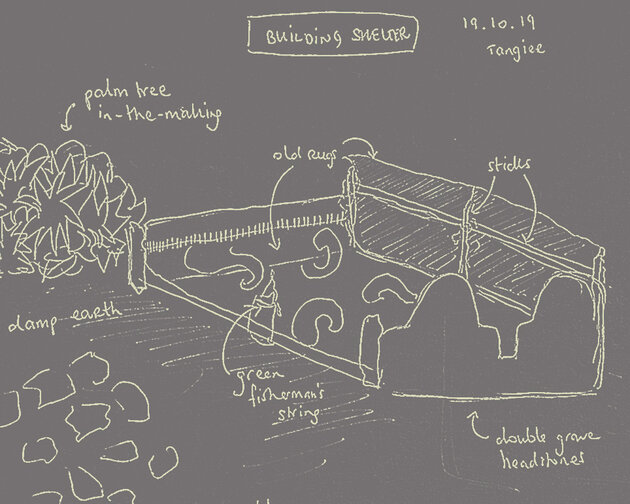 BUILDING SHELTER
19.10.19
Tangiee
palm tree
in-the-making
old rugs
sticks
damp earth
green
fisherman's
string
double grave
headstones